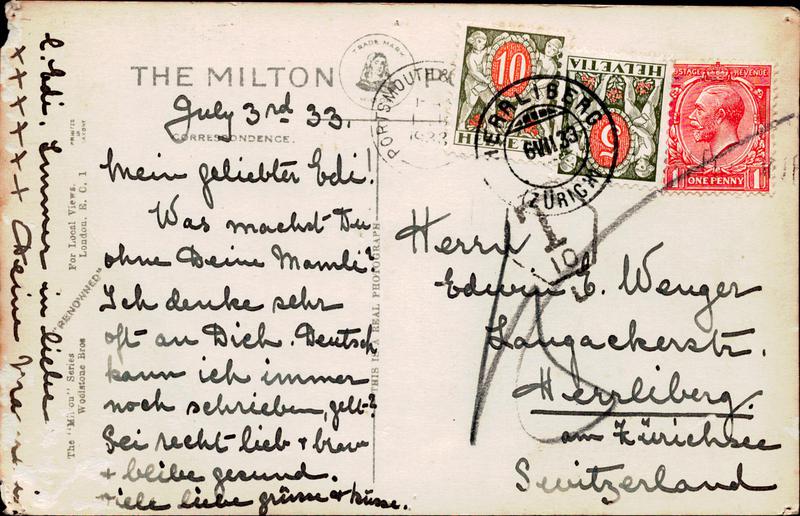 THE MILTON
TRADE MARK
July 3rd 33.
CORRESPONDENCE.
Mein geliebter Edi!
Was machst Du
ohne Deine Mamli?
Ich denke sehr
oft an Dich. Deutsch
kann ich immer
noch schrieben, gelt?
Sei recht lieb + brav
+ bleibe gesund.
Viele liebe grüsse & küsse.
Edi. Immer in Liebe
x x x x x x Deine
The "Milton" Series
Woolstone Bros
"RENOWNED"
For Local Views.
London. E. C. 1
THIS IS A REAL PHOTOGRAPH
PORTSMOUTH &
1933
10
HELVETIA
HELVETIA
5
HERRLIBERG
6VII33
(ZÜRICH)
POSTAGE REVENUE
1 ONE PENNY 1
T
10
Herrn
Edwin E. Wenger
Langackerstr.
Herrliberg.
am Zürichsee
Switzerland